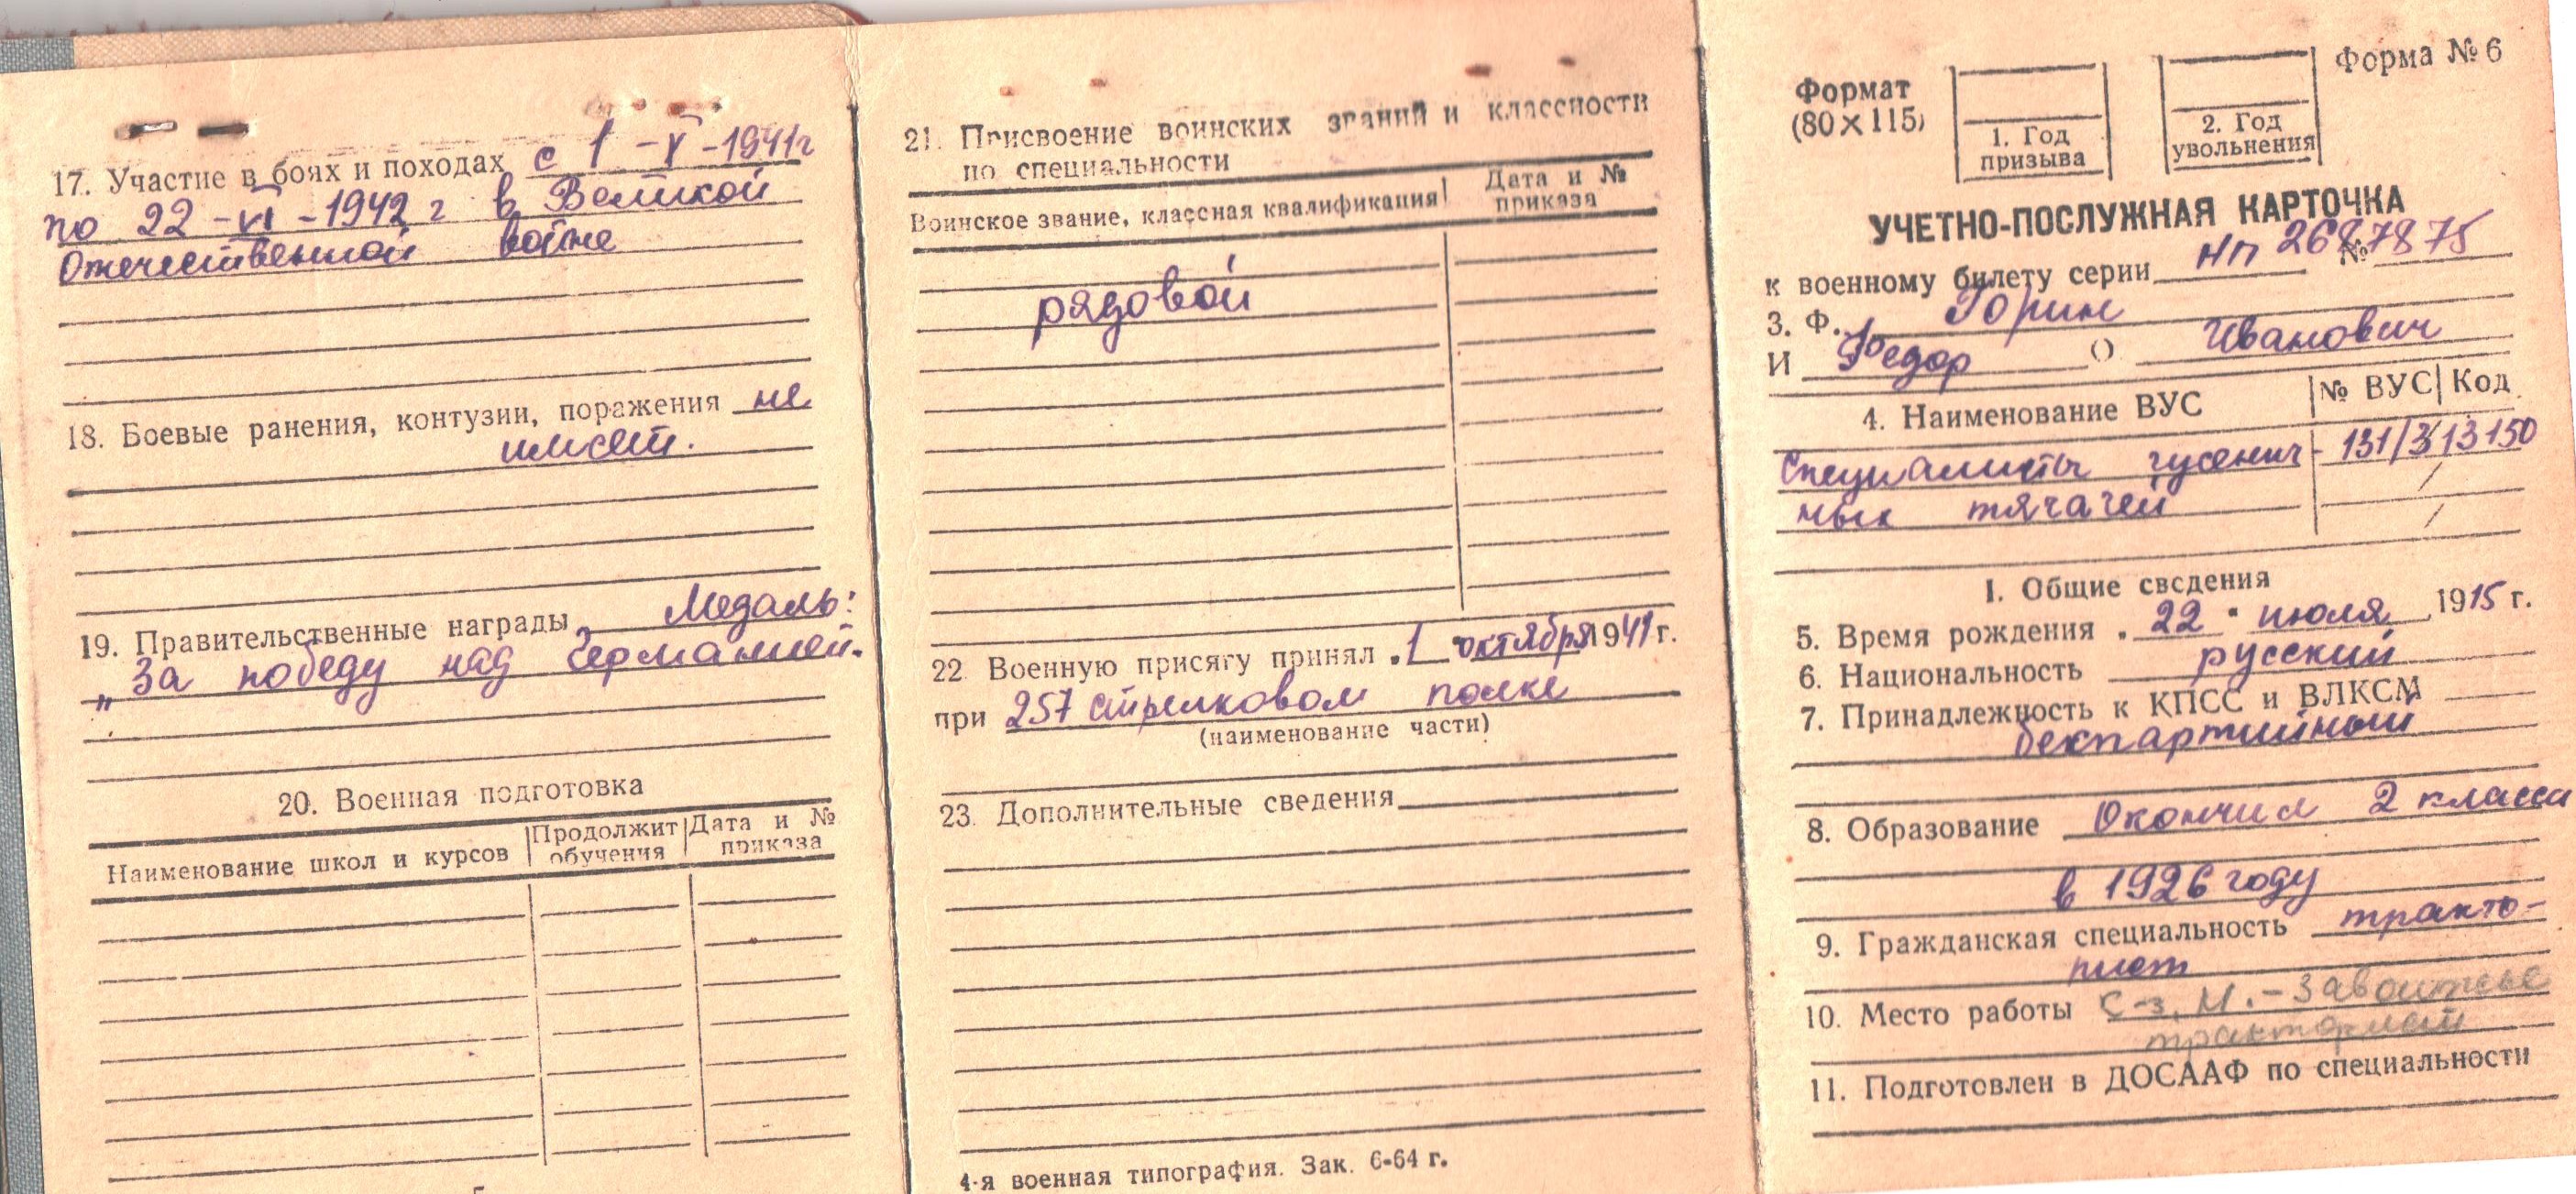 17. Участие в боях и походах с 1 -V -1941г
по 22 -VI -1942 г в Великой
Отечественной войне
18. Боевые ранения, контузии, поражения не
имеет.
19. Правительственные награды Медаль:
„За победу над Германией.
20. Военная подготовка
Наименование школ и курсов
Продолжит обучения
Дата и № приказа
21. Присвоение воинских званий и классности
по специальности
Воинское звание, классная квалификация
Дата и № приказа
рядовой
22 Военную присягу принял „1 октября 1941 г.
при 257 стрелковом полке
(наименование части)
23. Дополнительные сведения
4-я военная типография. Зак. 6-64 г.
Форма № 6
Формат
(80×115)
1. Год
призыва
2. Год
увольнения
УЧЕТНО-ПОСЛУЖНАЯ КАРТОЧКА
к военному билету серии НП № 2687875
3. Ф. Горин
И Федор О Иванович
4. Наименование ВУС № ВУС Код
Специалисты гусенич- 131/3 13150
ных тягачей
I. Общие сведения
5. Время рождения „22" июля 1915 г.
6. Национальность русский
7. Принадлежность к КПСС и ВЛКСМ
беспартийный
8. Образование Окончил 2 класса
в 1926 году
9. Гражданская специальность тракто-
рист
10. Место работы С-з. М.-Заволжье
тракторист
11. Подготовлен в ДОСААФ по специальности